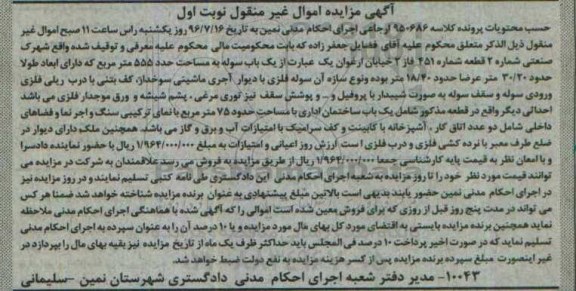 آگهی مزایده اموال غیر منقول نوبت اول
حسب محتویات پرونده کلاسه ۹۵۰۶۸۶ ارجاعی اجرای احکام مدنی نمین به تاریخ ۹۶/۷/۱۶ روز یکشنبه راس ساعت ۱۱ صبح اموال غیر
منقول ذیل الذکر متعلق محکوم علیه آقای فضایل جعفر زاده که بابت محکومیت مالی محکوم علیه معرفی و توقیف شده واقع شهرک
صنعتی شماره ۲ قطعه شماره ۴۵۱ فاز ۲ خیابان ارغوان یک عبارت از یک باب سوله به مساحت حدد ۵۵۵ متر مربع که دارای ابعاد طولا
حدود ۳۰/۲۰ متر عرضا حدود ۱۸/۴۰ متر بوده ونوع سازه آن سوله فلزی با دیوار آجری ماشینی سوخدار، کف بتنی با درب ریلی فلزی
ورودی سوله و سقف سوله به صورت شیبدار با پروفیل و ... و پوشش سقف نیز توری مرغی ، پشم شیشه و ورق موجدار فلزی می باشد
احداثی دیگر واقع در قطعه مذکور شامل یک باب ساختمان اداری با مساحت حدود ۷۵ متر مربع با نمای ترکیبی سنگ و اجر نما و فضاهای
داخلی شامل دو عدد اتاق کار ، آشپزخانه با کابینت و کف سرامیک با امتیازات آب و برق و گاز می باشد. همچنین ملک دارای دیوار در
ضلع طرف معبر با نرده کشی فلزی و درب فلزی است . ارزش روز اعیانی و امتیازات به مبلغ ۱/۹۶۴/۰۰۰/۰۰۰ ریال با حضور نماینده دادسرا
و با امعان نظر به قیمت پایه کارشناسی جمعا ۱/۹۶۴/۰۰۰/۰۰۰ ریال از طریق مزایده به فروش می رسد علاقمندان به شرکت در مزایده می
توانند قیمت مورد نظر خود را تا روز مزایده به شعبه اجرای احکام مدنی این دادگستری طی نامه کتبی تسلیم نمایند و در روز مزایده نیز
در اجرای احکام مدنی نمین حضور یابند بدیهی است بالاترین مبلغ پیشنهادی به عنوان برنده مزایده شناخته خواهد شد ضمنا هر کس
می تواند در مدت پنج روز قبل از روزی که برای فروش معین شده است اموالی را که آگهی شده با هماهنگی اجرای احکام مدنی ملاحظه
نماید همچنین برنده مزایده بایستی به اقتضای مورد کل بهای مال مورد مزایده و یا ۱۰ درصد آن را به عنوان سپرده به اجرای احکام مدنی
تسلیم نماید که در صورت اخیر پرداخت ۱۰ درصد فی المجلس باید حداکثر ظرف یک ماه از تاریخ مزایده نیز بقیه بهای مال را بپردازد در
غیر اینصورت مبلغ سپرده برنده مزایده پس از کسر هزینه مزایده به نفع دولت ضبط خواهد شد.
۱۰۰۴۳- مدیر دفتر شعبه اجرای احکام مدنی دادگستری شهرستان نمین -سلیمانی